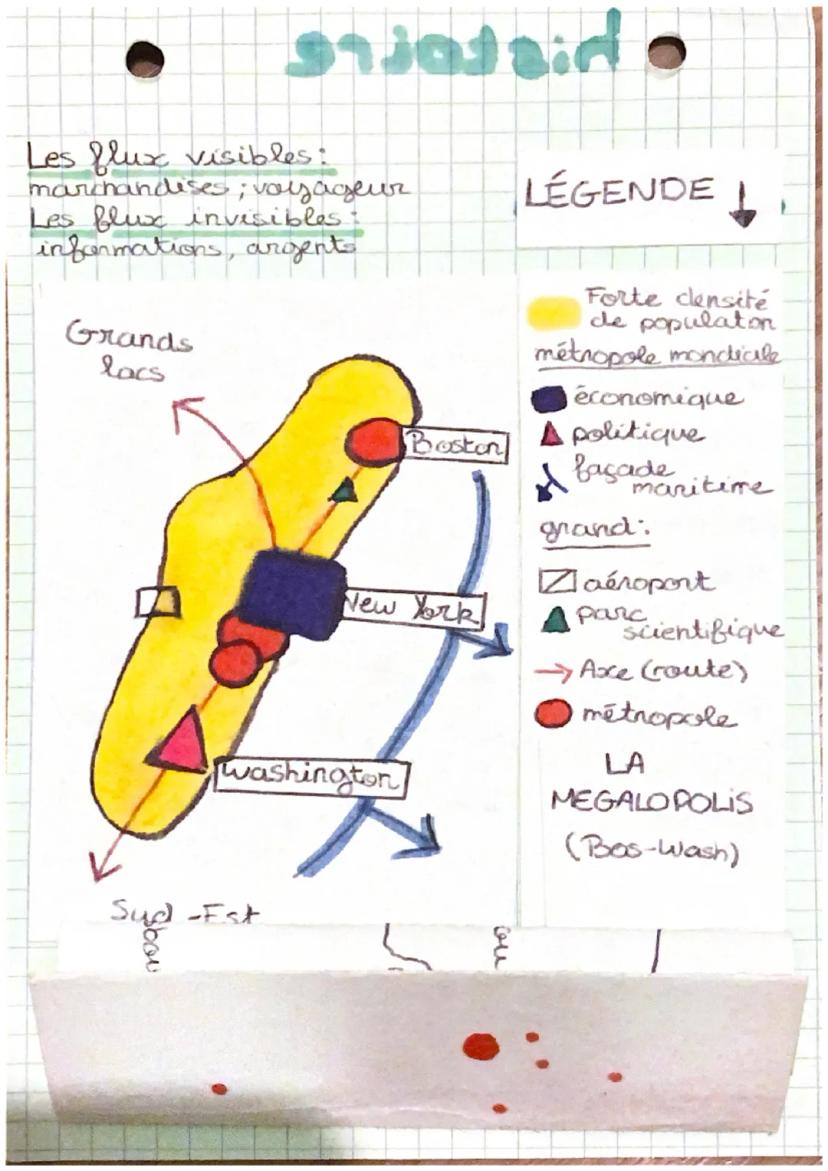 histoire
Les flux visibles:
marchandises ; voyageur
Les flux invisibles:
informations, argents
LÉGENDE ↓
Grands
lacs
Boston
New York
Washington
Sud-Est
Forte densité
de populaton
métropole mondiale
économique
politique
façade
maritime
grand:
aéroport
parc
scientifique
Axe (route)
métropole
LA
MEGALOPOLIS
(Bos-Wash)